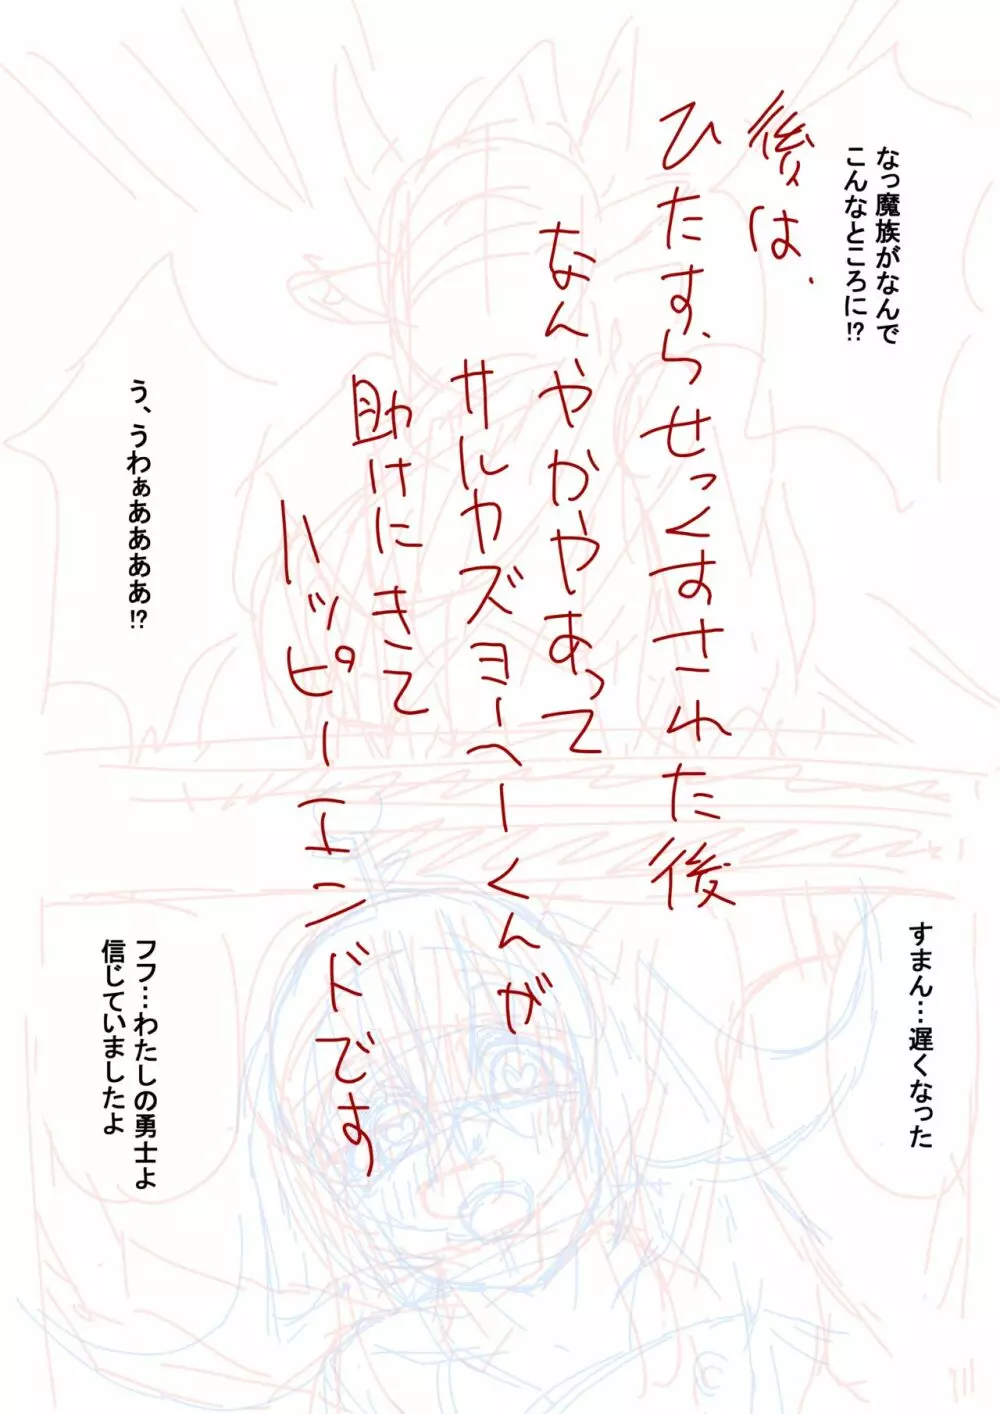 なっ魔族がなんで
こんなところに!?
後は、
ひたすらせっくすされた後
なんやかやあって
サルカズヨーヘーくんが
助けにきて
ハッピーエンドです
う、うわぁあああぁ!?
すまん…遅くなった
フフ…わたしの勇士よ
信じていましたよ